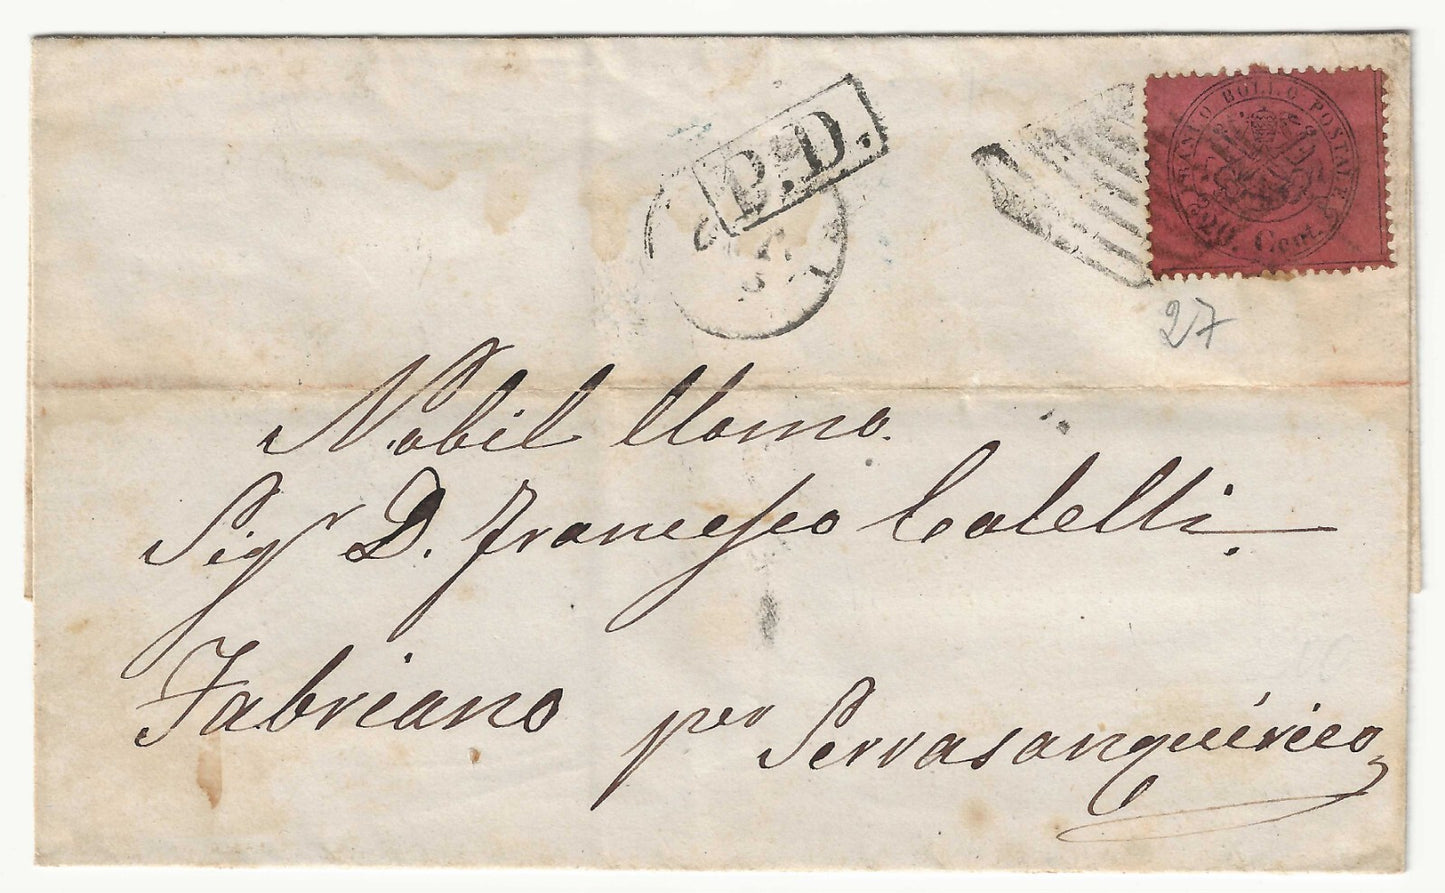 P.D.
FRANCO BOLLO POSTALE
20. Cent.
27
Nobil Uomo.
Sigr D. Francesco Catelli.
Fabriano per Serrasanquirico